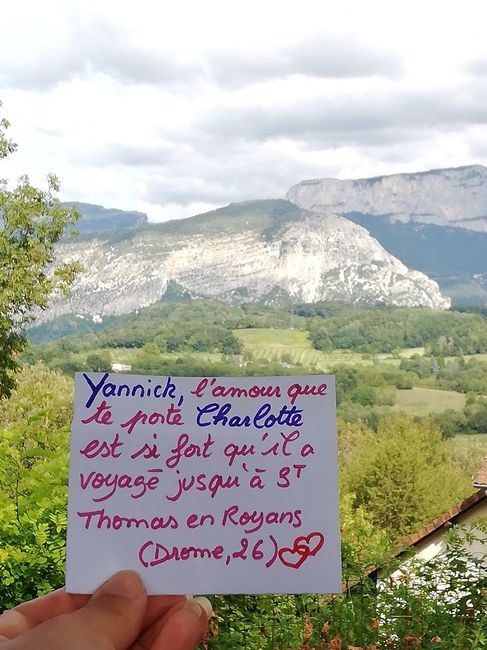 Yannick, l'amour que
te porte Charlotte
est si fort qu'il a
voyagé jusqu'à ST
Thomas en Royans
(Drome, 26)